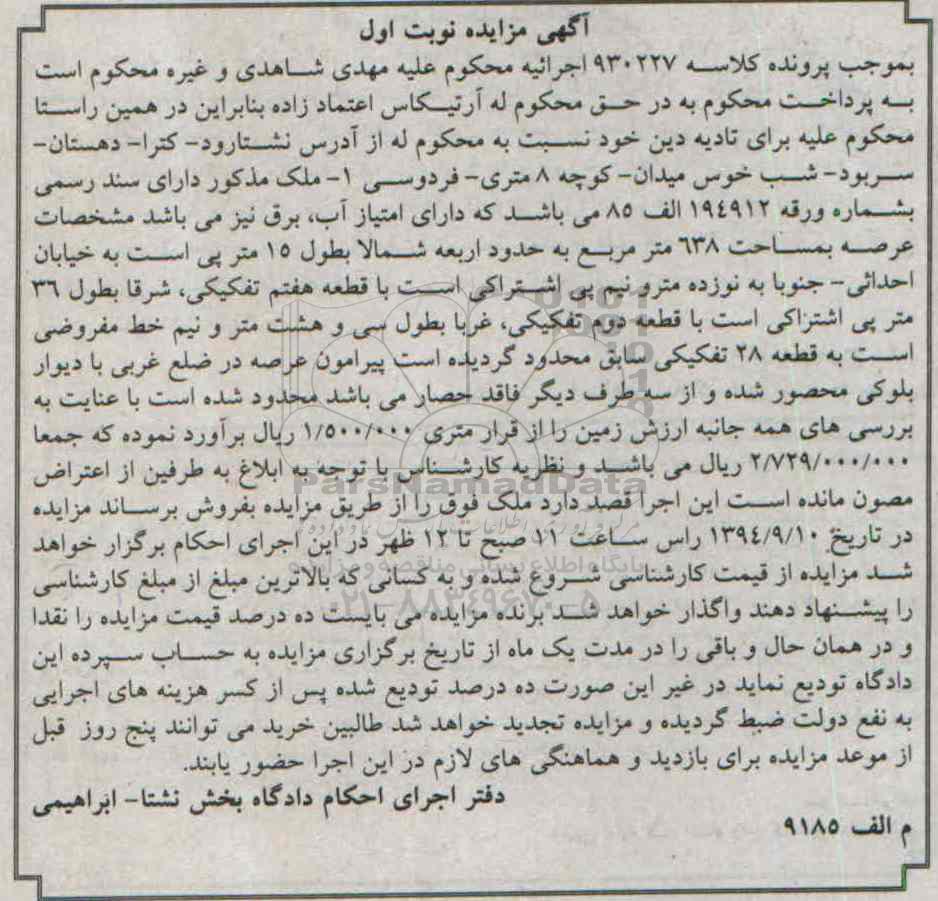 آگهی مزایده نوبت اول
بموجب پرونده کلاسه ۹۳۰۲۲۷ اجرائیه محکوم علیه مهدی شاهدی و غیره محکوم است
به پرداخت محکوم به در حق محکوم له آرتیکاس اعتماد زاده بنابراین در همین راستا
محکوم علیه برای تادیه دین خود نسبت به محکوم له از آدرس نشتارود- کترا- دهستان-
سربود- شب خوس میدان- کوچه ۸ متری- فردوسی ۱- ملک مذکور دارای سند رسمی
بشماره ورقه ۱۹٤۹۱۲ الف ۸۵ می باشد که دارای امتیاز آب، برق نیز می باشد مشخصات
عرصه بمساحت ٦۳۸ متر مربع به حدود اربعه شمالا بطول ۱۵ متر پی است به خیابان
احداثی- جنوبا به نوزده مترو نیم پی اشتراکی است با قطعه هفتم تفکیکی، شرقا بطول ۳٦
متر پی اشتزاکی است با قطعه دوم تفکیکی، غربا بطول سی و هشت متر و نیم خط مفروضی
است به قطعه ۲۸ تفکیکی سابق محدود گردیده است پیرامون عرصه در ضلع غربی با دیوار
بلوکی محصور شده و از سه طرف دیگر فاقد حصار می باشد محدود شده است با عنایت به
بررسی های همه جانبه ارزش زمین را از قرار متری ۱/۵۰۰/۰۰۰ ریال برآورد نموده که جمعا
۲/۷۲۹/۰۰۰/۰۰۰ ریال می باشد و نظریه کارشناس با توجه به ابلاغ به طرفین از اعتراض
مصون مانده است این اجرا قصد دارد ملک فوق را از طریق مزایده بفروش برساند مزایده
در تاریخ ۱۳۹٤/۹/۱۰ راس ساعت ۱۱ صبح تا ۱۲ ظهر در این اجرای احکام برگزار خواهد
شد مزایده از قیمت کارشناسی شروع شده و به کسانی که بالاترین مبلغ از مبلغ کارشناسی
را پیشنهاد دهند واگذار خواهد شد برنده مزایده می بایست ده درصد قیمت مزایده را نقدا
و در همان حال و باقی را در مدت یک ماه از تاریخ برگزاری مزایده به حساب سپرده این
دادگاه تودیع نماید در غیر این صورت ده درصد تودیع شده پس از کسر هزینه های اجرایی
به نفع دولت ضبط گردیده و مزایده تجدید خواهد شد طالبین خرید می توانند پنج روز قبل
از موعد مزایده برای بازدید و هماهنگی های لازم در این اجرا حضور یابند.
دفتر اجرای احکام دادگاه بخش نشتا- ابراهیمی
م الف ۹۱۸۵
ParsNamadData
پایگاه اطلاع رسانی مناقصه و مزایده
۰۲۱-۸۸۳٤۹٦۷۰-۵